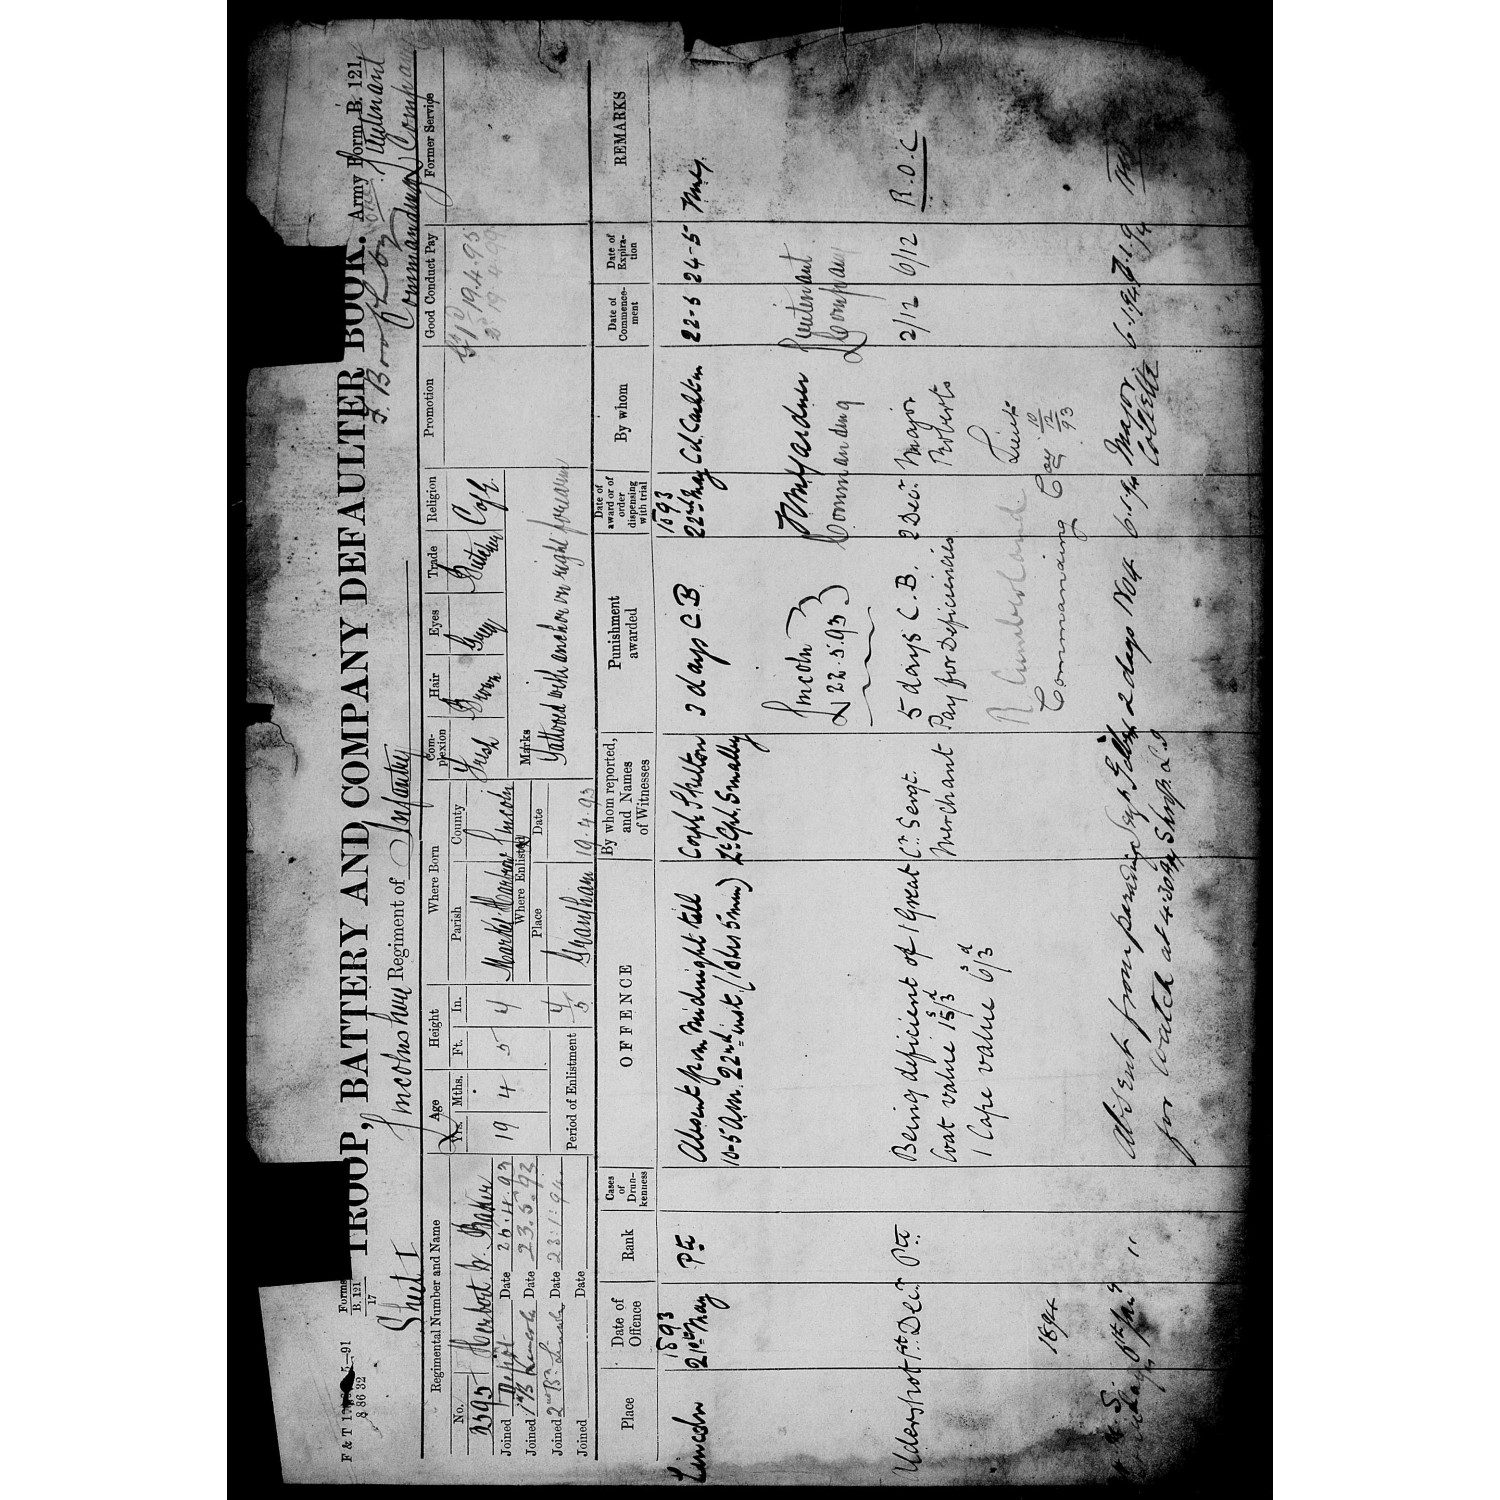 F & T 5—91
8 86 32
Forms
B. 121
17
TROOP, BATTERY AND COMPANY DEFAULTER BOOK.
Army Form B. 121.
Sheet I
Lincolnshire Regiment of Infantry
Lieutenant
Commanding Company
Regimental Number and Name
Age
Height
Where Born
Complexion
Hair
Eyes
Trade
Religion
Promotion
Good Conduct Pay
Former Service
Yrs. Mths.
Ft. In.
Parish County
No. 3395 Herbert W. Baker
19 4 5 4
Market Harboro Lincoln
Fresh Brown Grey Butcher C of E.
19.4.95
2nd 19.4.99
Joined Depôt Date 26.4.93
Joined 1st Bn Date 23.5.93
Joined 2nd Bn Lincoln Date 23.1.94
Joined Date
Period of Enlistment
Where Enlisted
Place Date
Grantham 19.4.93
Marks
Tattooed with anchor on right forearm
Place
Date of Offence
Rank
Cases of Drunkenness
OFFENCE
By whom reported, and Names of Witnesses
Punishment awarded
Date of award or of order dispensing with trial
By whom
Date of Commencement
Date of Expiration
REMARKS
1893 1893
Lincoln 21st May Pte Absent from Midnight till Corpl Skelton 3 days C.B. 22nd May Col. 22-5 24-5
10-5 a.m. 22nd inst. (10 hrs 5 min) Lc. Cpl. Smalley
Lincoln
22.5.93
Lieutenant
Commanding Company
1st Decr Pte Being deficient of 1 Great Cr Sergt. 5 days C.B. 2 Decr Major 2/12 6/12 R.O.C
Coat value 15s/3d Merchant Pay for Deficiencies Roberts
1 Cape value 6s/3d
R Cumberland Lieut
Commanding Coy. 10/12/93
1894
6th Jan " Absent from parade Sergt 2 days 6.1.94 Major 6.1.94
for watch at